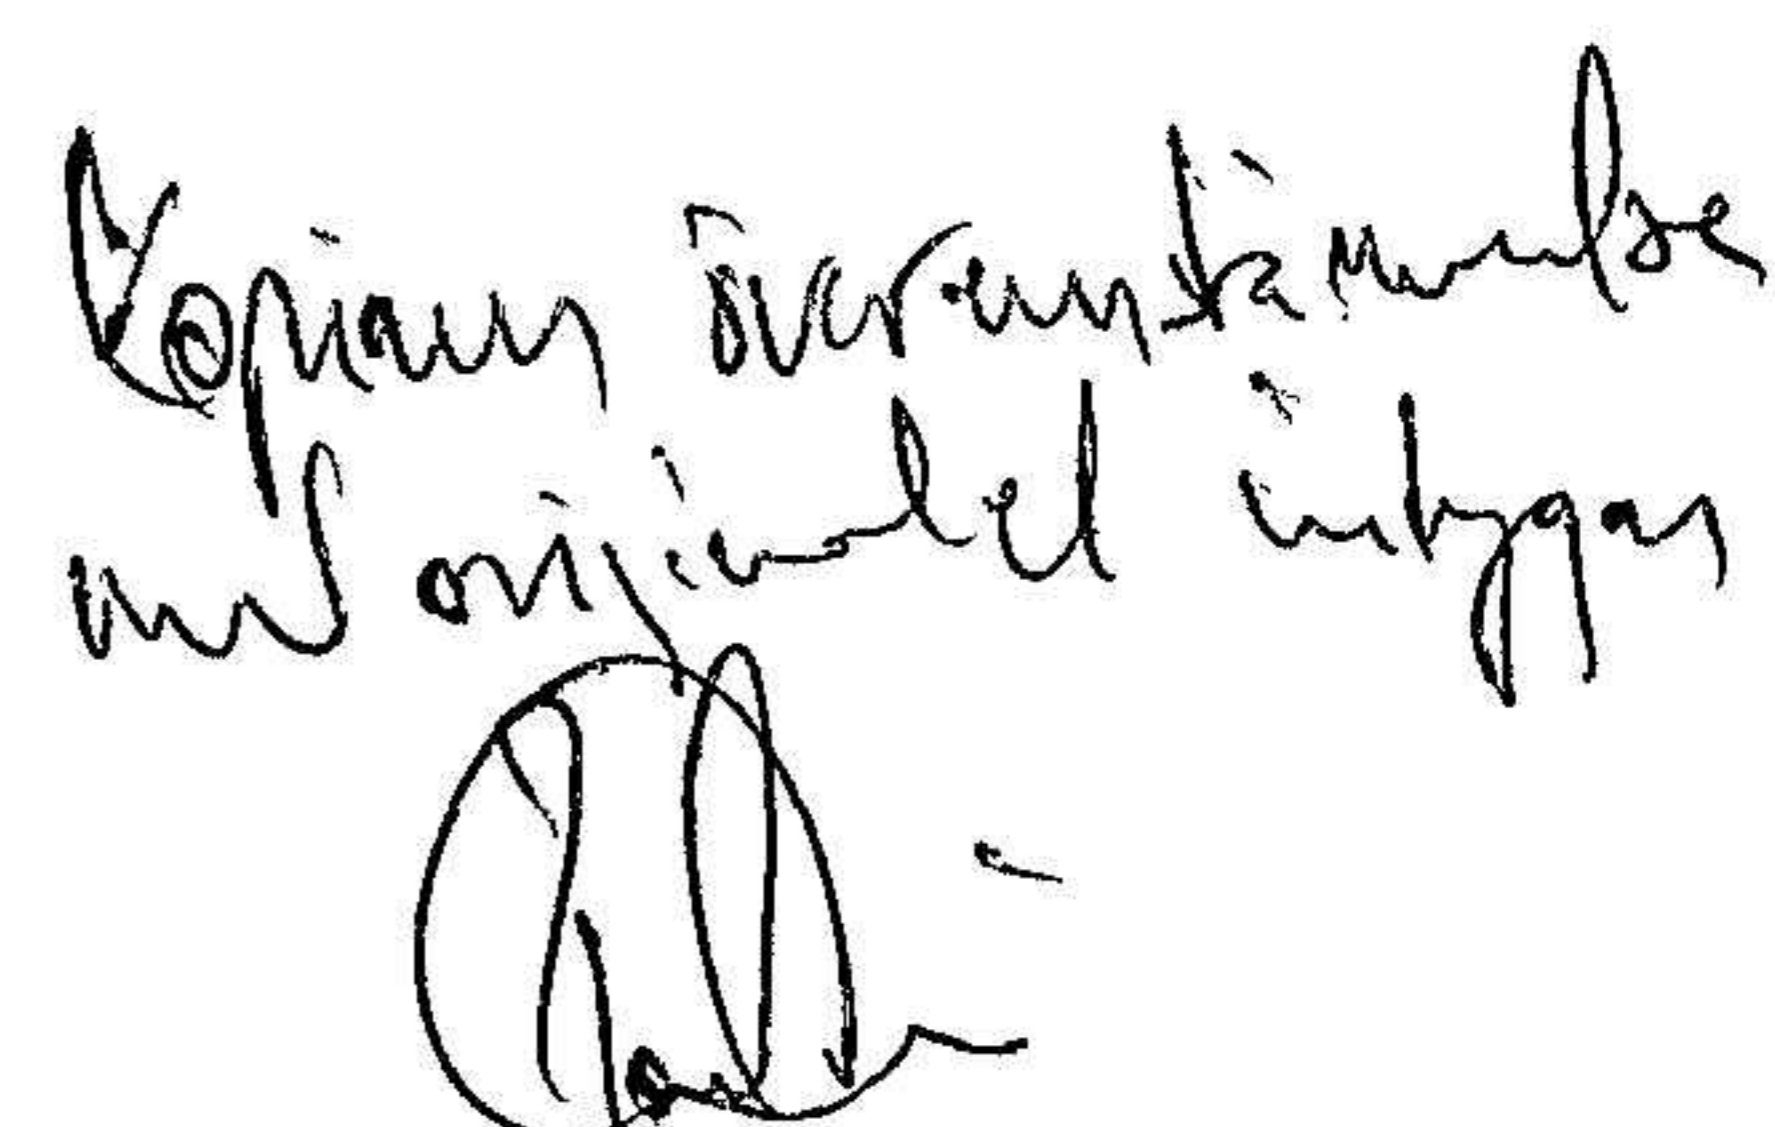 Kopians överenstämmelse
med originalet intygas